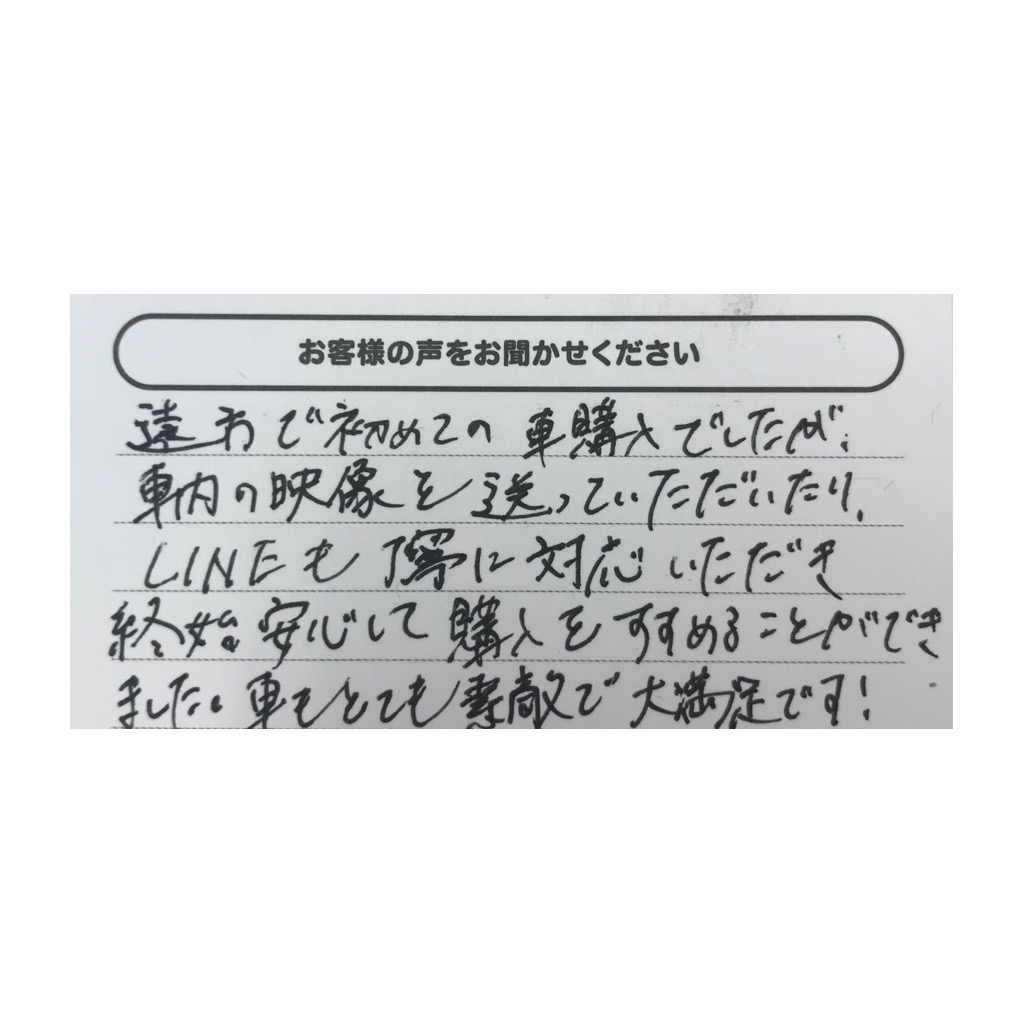 お客様の声をお聞かせください
遠方で初めての車購入でしたが、
車内の映像を送っていただいたり、
LINEも丁寧に対応いただき
終始安心して購入をすすめることができ
ました。車もとても素敵で大満足です!